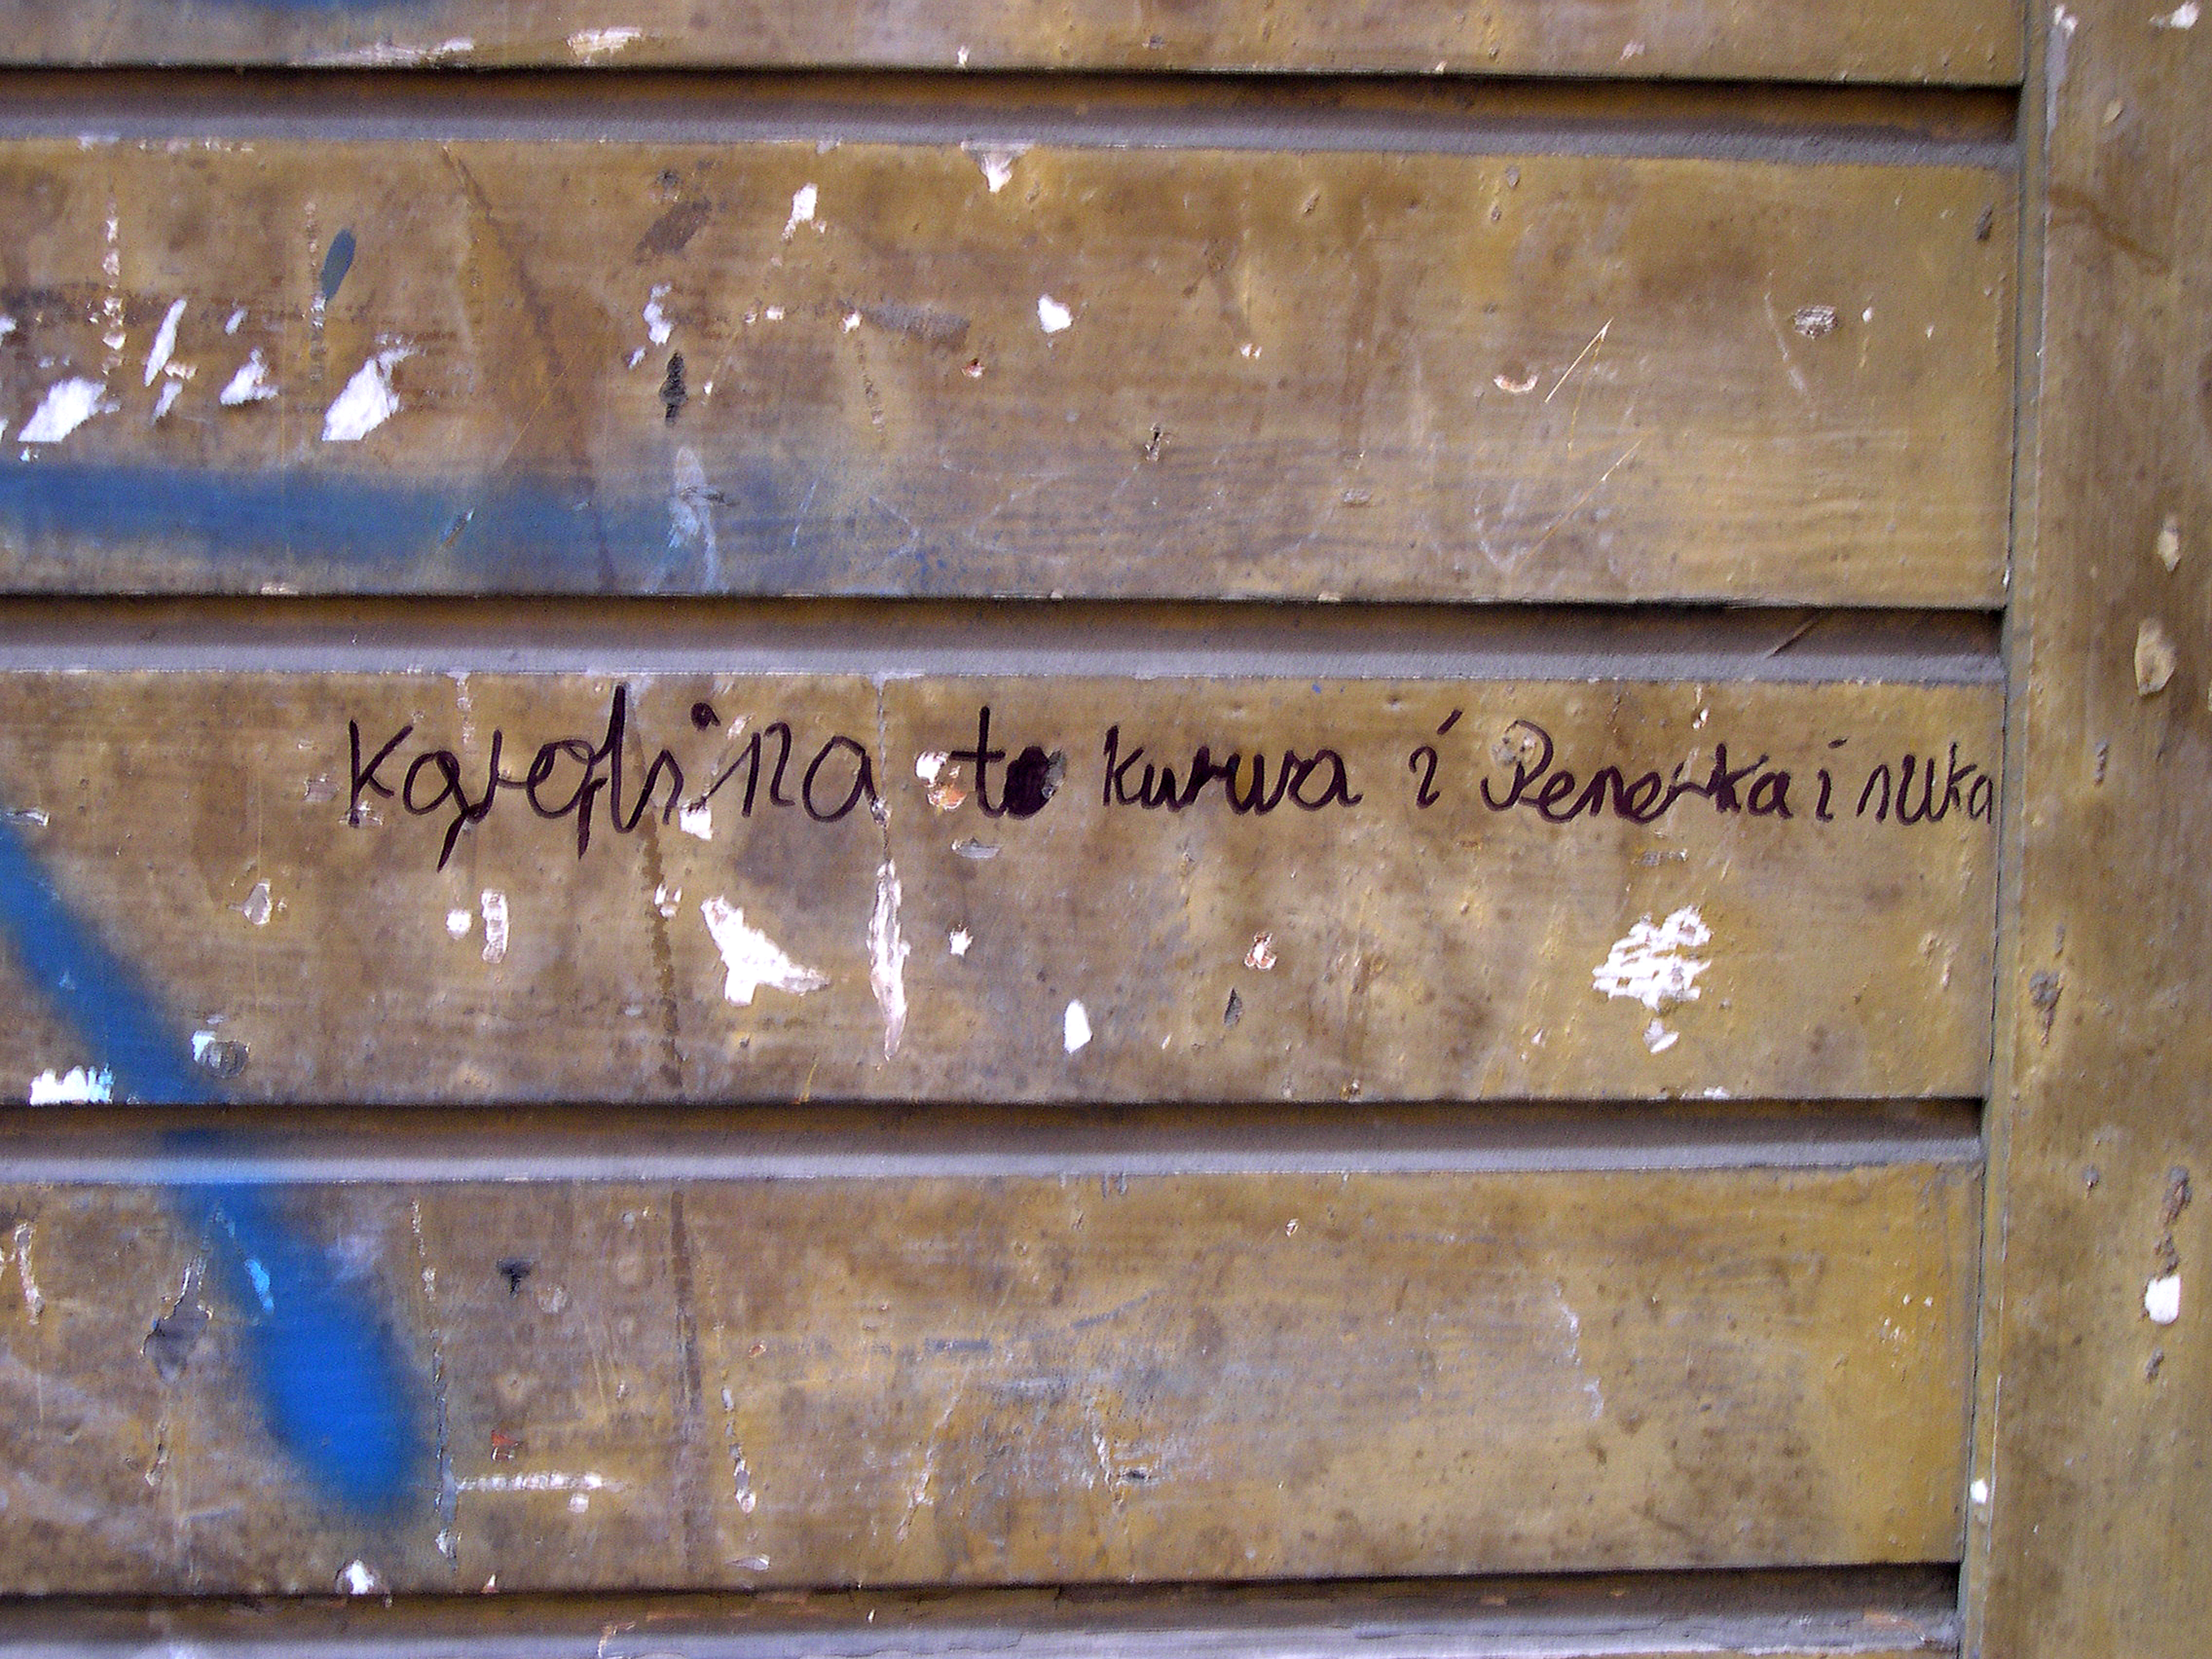 Karolina to kurwa i Penerka i suka